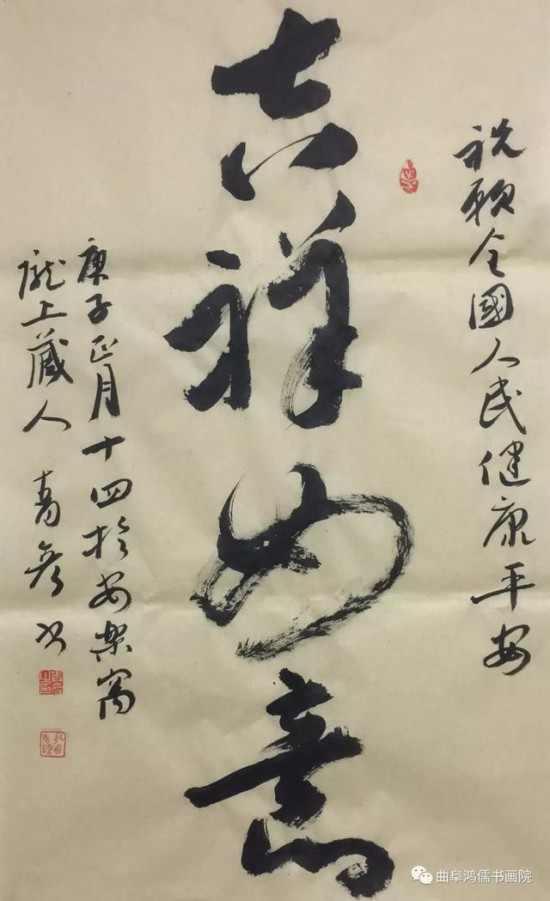 祝愿全國人民健康平安
吉祥如意
庚子正月十四於安樂窩
隴上藏人
曲阜鸿儒书画院